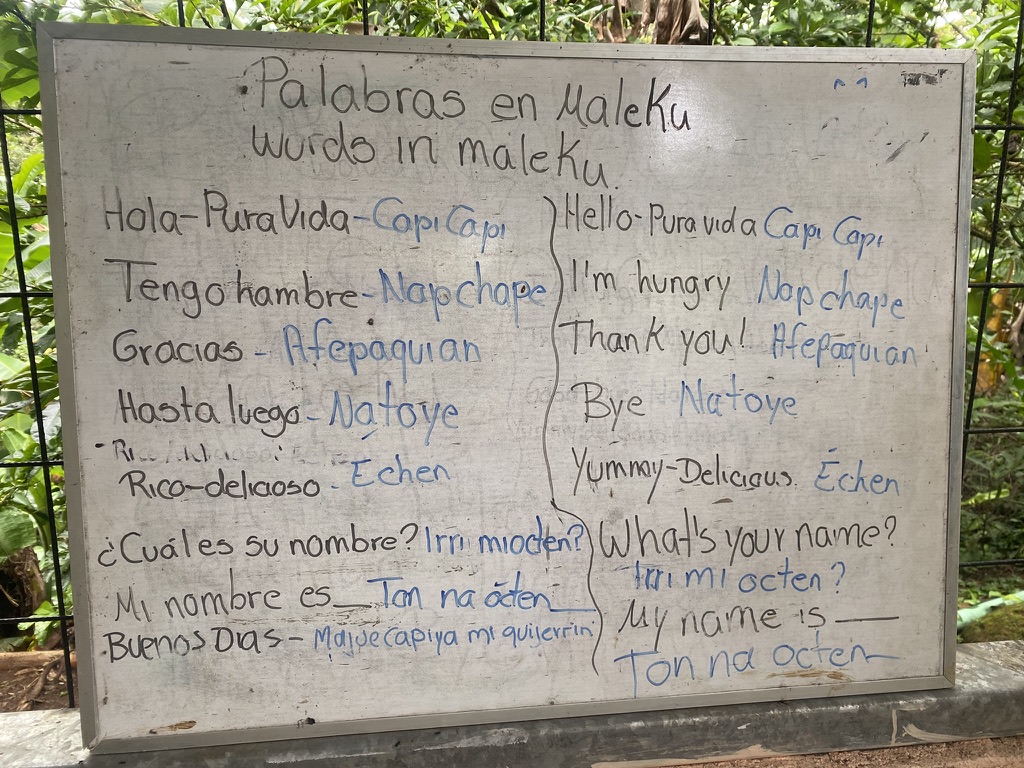 Palabras en Maleku
Words in maleku.
Hola-Pura Vida-Capi Capi
Tengo hambre-Napchape
Gracias - Afepaquian
Hasta luego-Natoye
Rico-delicioso - Echen
¿Cuál es su nombre? Irri mi octen?
Mi nombre es__Ton na octen__
Buenos Dias - Majue capiya mi quijerrin
Hello-Pura vida Capi Capi
I'm hungry Napchape
Thank you! Afepaquian
Bye Natoye
Yummy-Delicious. Échen
What's your name?
Irri mi octen?
My name is __
Ton na octen__